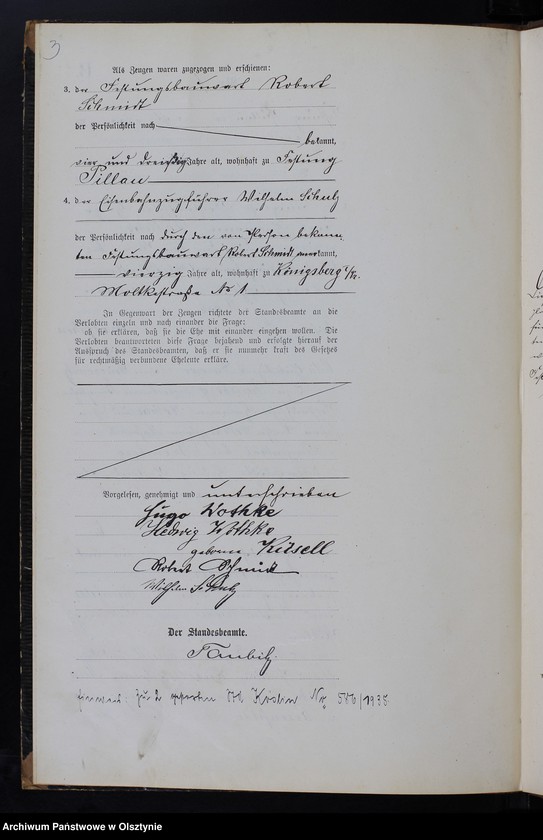 3
Als Zeugen waren zugezogen und erschienen:
3. der Festungsbauwart Robert
Schmidt
der Persönlichkeit nach
bekannt,
vier und dreißig Jahre alt, wohnhaft zu Festung
Pillau
4. der Eisenbahnzugführer Wilhelm Schulz
der Persönlichkeit nach durch den von Person bekann-
ten Festungsbauwart Robert Schmidt anerkannt,
vierzig Jahre alt, wohnhaft zu Königsberg i/Pr.
Moltkestraße No 1
In Gegenwart der Zeugen richtete der Standesbeamte an die
Verlobten einzeln und nach einander die Frage:
ob sie erklären, daß sie die Ehe mit einander eingehen wollen. Die
Verlobten beantworteten diese Frage bejahend und erfolgte hierauf der
Ausspruch des Standesbeamten, daß er sie nunmehr kraft des Gesetzes
für rechtmäßig verbundene Eheleute erkläre.
Vorgelesen, genehmigt und unterschrieben
Hugo Wothke
Hedwig Wothke
geborene Küsell
Robert Schmidt
Wilhelm Schulz
Der Standesbeamte.
No 580/1938
Archiwum Państwowe w Olsztynie